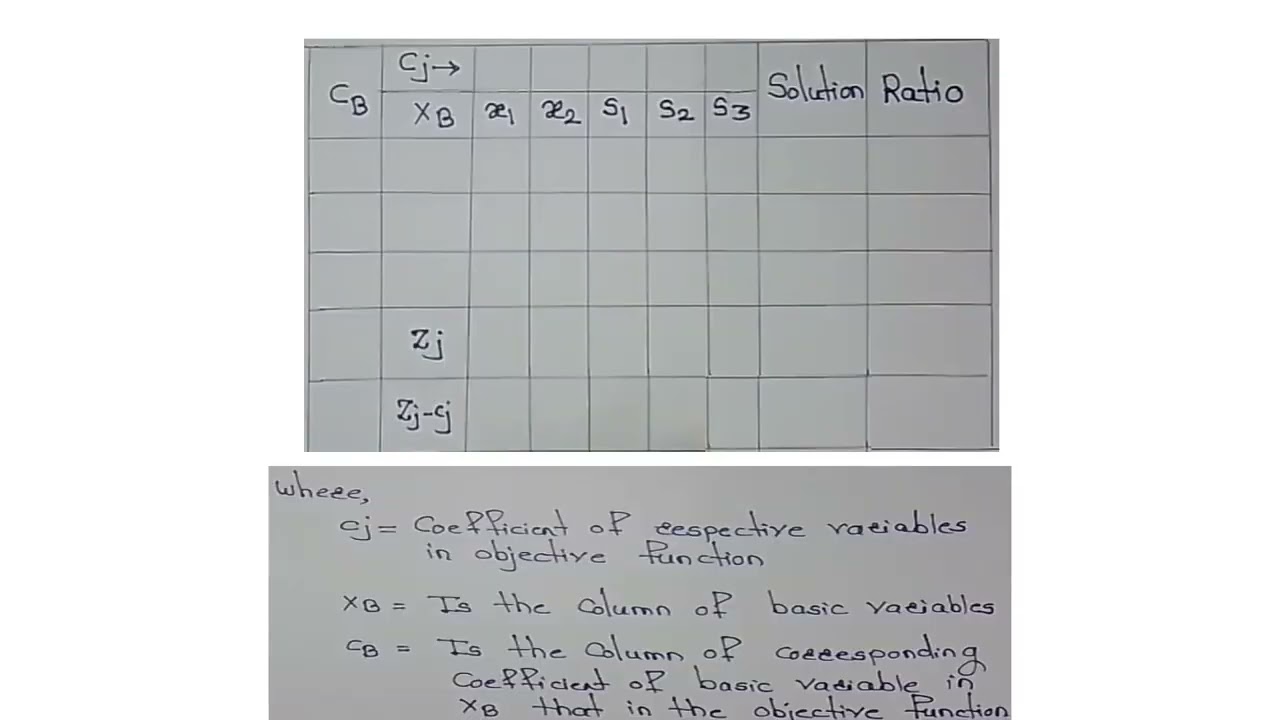 CB Cj→ Solution Ratio
XB x1 x2 S1 S2 S3
Zj
Zj-cj
where,
cj = Coefficient of respective variables
in objective function
XB = Is the column of basic variables
CB = Is the column of corresponding
Coefficient of basic variable in
XB that in the objective function